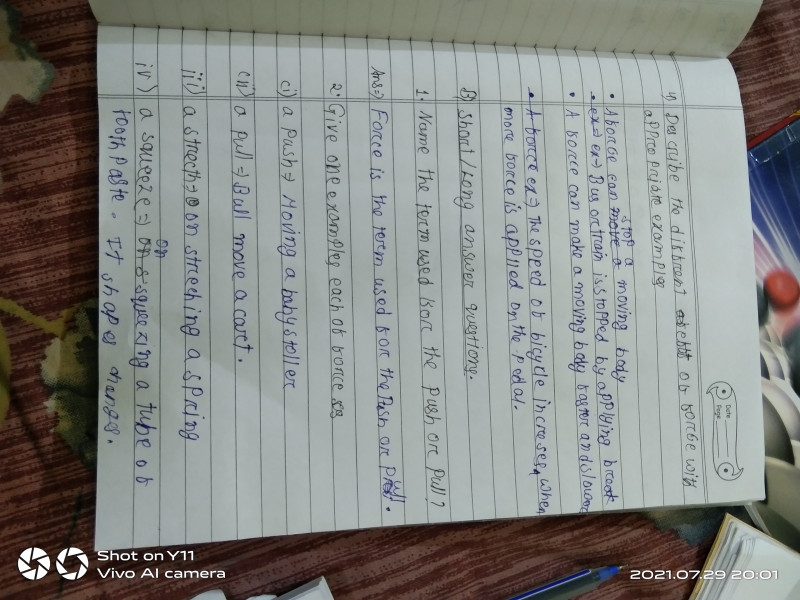 Date
Page
4) Describe the different effect of force with
appropriate examples
stop a
• A force can move a moving body
• ex⇒ ex⇒ Bus or train is stopped by applying break
• A force can make a moving body faster and slower
• A force ex⇒ the spped of bicycle increases, when
more force is applied on the pedal.
B) Short/Long answer questions.
1. Name the term used for the push or pull?
Ans⇒ Force is the term used for the Push or pull.
2. Give one examples each of force as
i) a push⇒ Moving a baby stoller
ii) a pull⇒ Bull move a cart.
iii) a strecth⇒ on streching a spring
on
iv) a squeeze⇒ on s squeezing a tube of
tooth paste. It shapes changes.
Shot on Y11
Vivo AI camera
2021.07.29 20:01